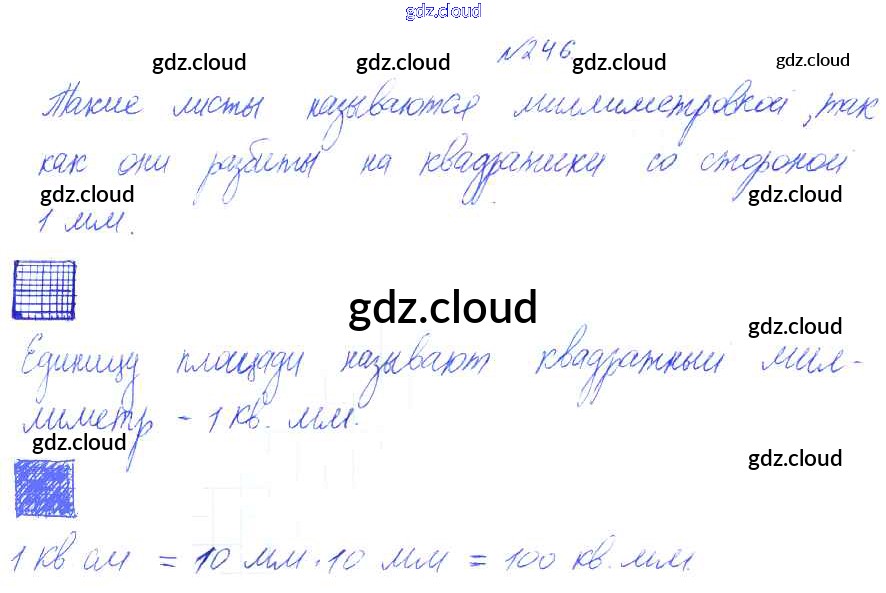 gdz.cloud
№246
gdz.cloud gdz.cloud gdz.cloud gdz.cloud
Такие листы называются миллиметровкой, так
как они разбиты на квадратики со стороной
gdz.cloud gdz.cloud
1 мм.
gdz.cloud
gdz.cloud
Единицу площади называют квадратный мил-
лиметр - 1 кв. мм.
gdz.cloud gdz.cloud
1 кв см = 10 мм · 10 мм = 100 кв. мм.